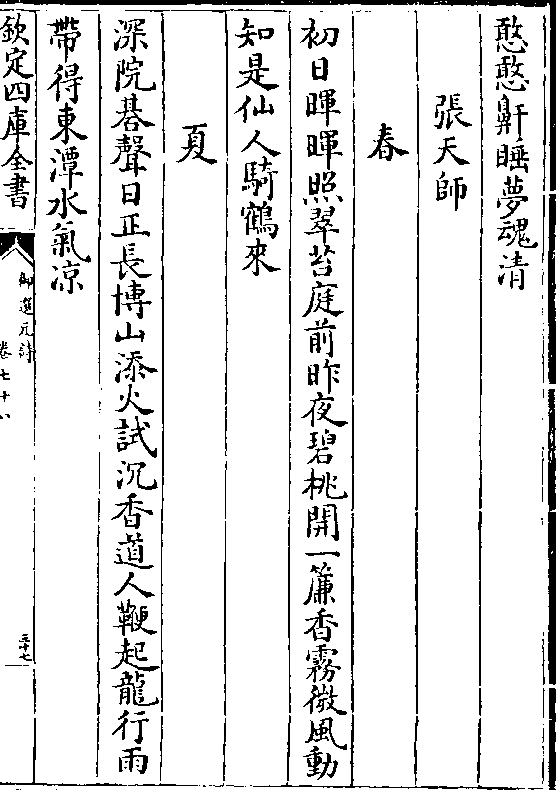 憨憨鼾睡夢魂清
張天師
春
初日暉暉照翠苔庭前昨夜碧桃開一簾香霧微風動
知是仙人騎鶴來
夏
深院棊聲日正長博山添火試沉香道人鞭起龍行雨
帶得東潭水氣凉
欽定四庫全書
御選元詩
卷七十八
三十七